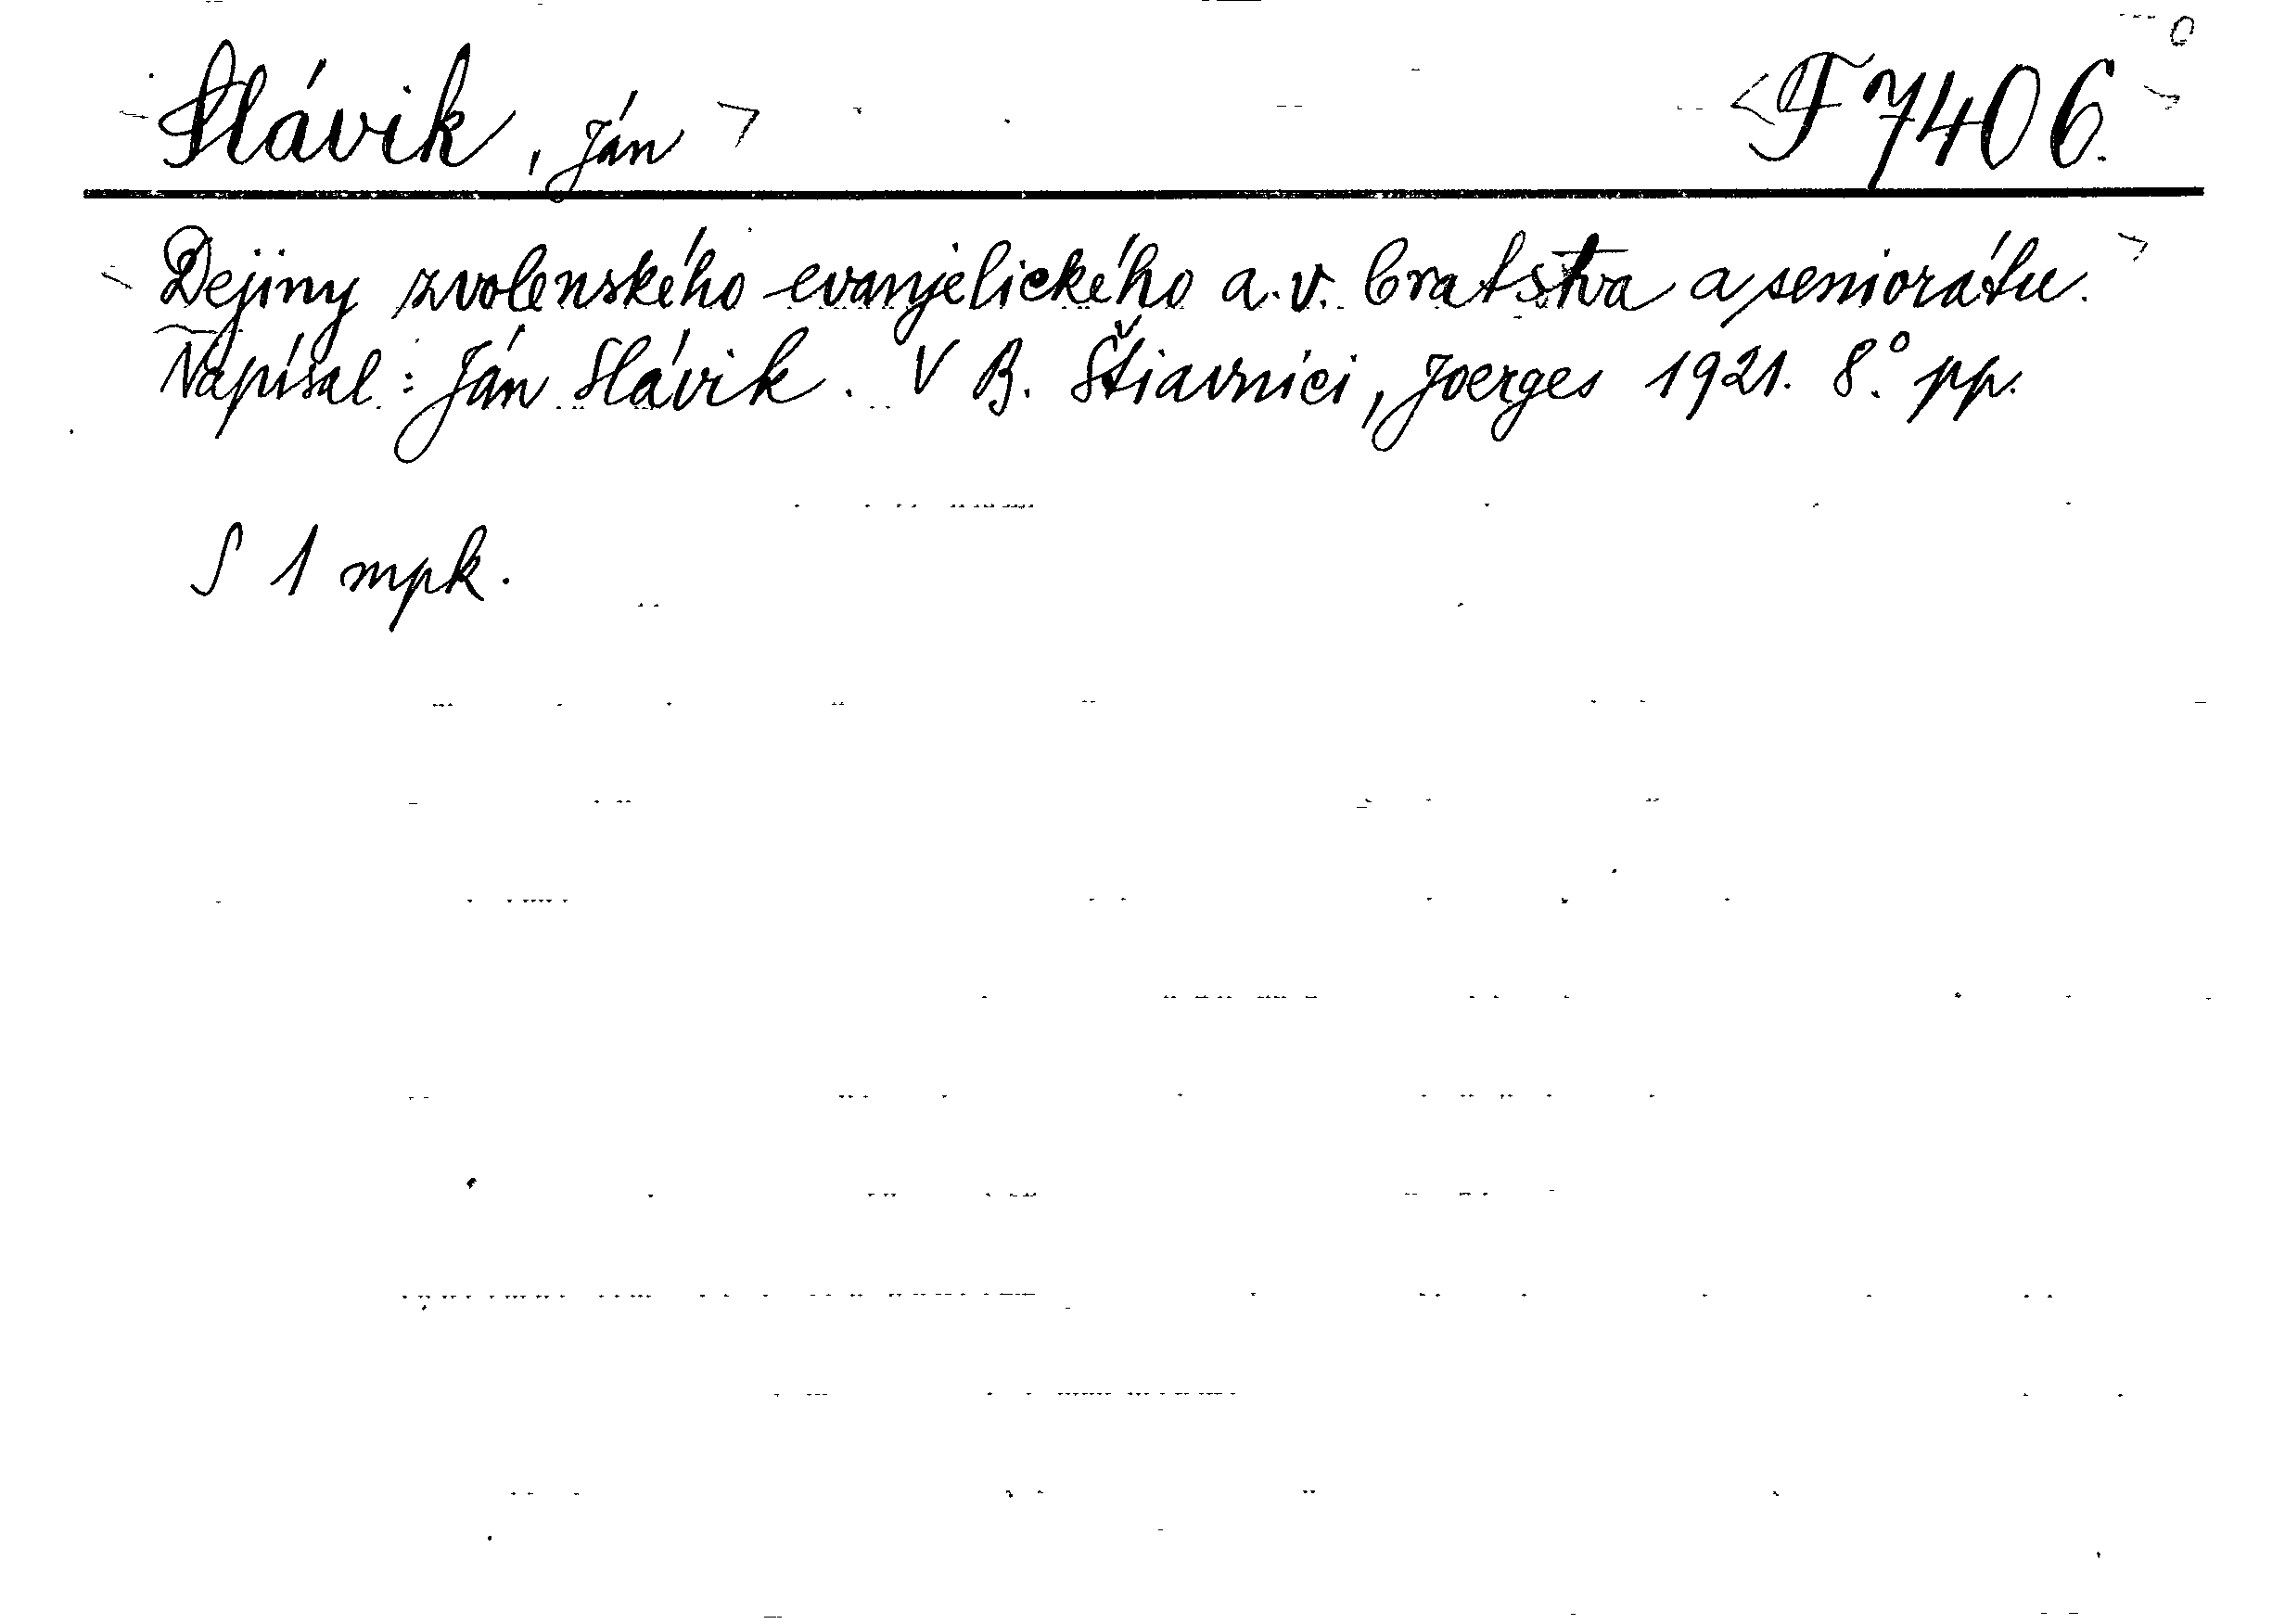 Slávik, Ján F 7406.
Dejiny zvolenského evanjelického a. v. bratstva a seniorátu.
Napísal: Ján Slávik. V B. Štiavnici, Joerges 1921. 8° pp.
S 1 mpk.